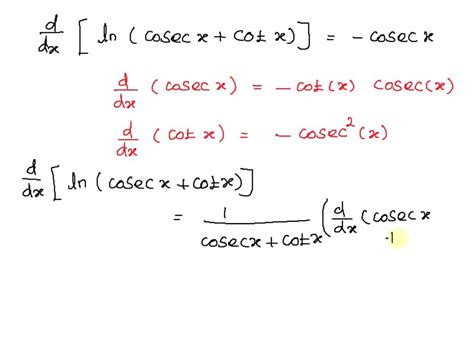 d/dx [ ln ( cosec x + cot x ) ] = - cosec x
d/dx ( cosec x ) = - cot(x) cosec(x)
d/dx ( cot x ) = - cosec²(x)
d/dx [ ln ( cosec x + cot x ) ]
= 1/(cosec x + cot x) ( d/dx ( cosec x
-1